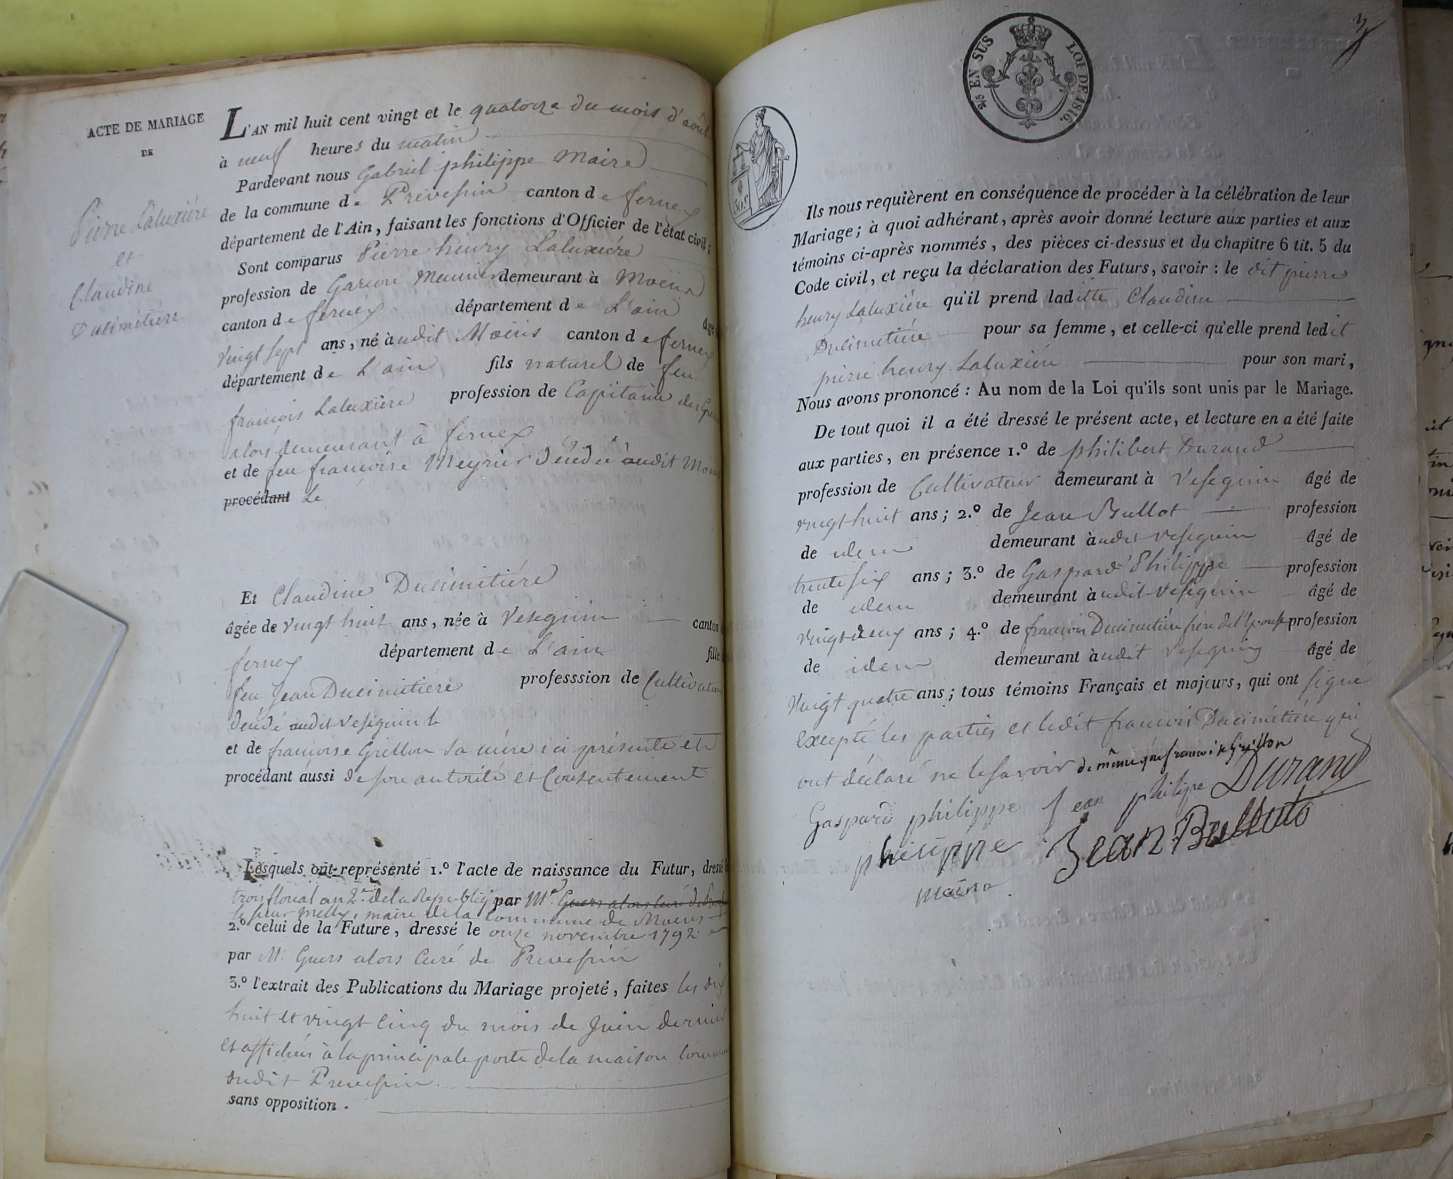 ACTE DE MARIAGE
DE
Pierre Laluxiére
et
Claudine
Ducimitiére
L'AN mil huit cent vingt et le quatorze du mois d'août
à neuf heures du matin
Pardevant nous Gabriel philippe Maire
de la commune de Prevessin canton de ferney
département de l'Ain, faisant les fonctions d'Officier de l'état civil;
Sont comparus Pierre henry Laluxiere
profession de Garçon Meunier demeurant à Moëns
canton de ferney département de L'ain âgé
vingt sept ans, né audit Moëns canton de ferney
département de L'ain fils naturel de feu
françois Laluxiére profession de Capitaine des
alors demeurant à ferney
et de feu françoise Meynier décédée audit Moëns
procédant Le
Et Claudine Ducimitiére
âgée de vingt huit ans, née à Vesegnin canton
ferney département de L'ain fille
feu Jean Ducimitiére professsion de Cultivateur
décédé audit vesegnin &
et de françoise Grillon sa mère ici présente et
procédant aussi de son autorité et Consentement
Lesquels ont représenté 1.º l'acte de naissance du Futur, dressé
trois floréal an 2.me de la Republiq par Mr Guers alors curé de
le sieur Melly, maire de la Commune de Moëns
2.º celui de la Future, dressé le onze novembre 1792
par Mr Guers alors Curé de Prevessin
3.º l'extrait des Publications du Mariage projeté, faites les dix
huit et vingt cinq du mois de Juin dernier
et affichés à la principale porte de la maison
dudit Prevessin
sans opposition.
25 EN SUS LOI DE 1816.
3
Ils nous requièrent en conséquence de procéder à la célébration de leur
Mariage; à quoi adhérant, après avoir donné lecture aux parties et aux
témoins ci-après nommés, des pièces ci-dessus et du chapitre 6 tit. 5 du
Code civil, et reçu la déclaration des Futurs, savoir: le dit pierre
henry Laluxiére qu'il prend laditte Claudine
Ducimitiére pour sa femme, et celle-ci qu'elle prend ledit
pierre henry Laluxiére pour son mari,
Nous avons prononcé: Au nom de la Loi qu'ils sont unis par le Mariage.
De tout quoi il a été dressé le présent acte, et lecture en a été faite
aux parties, en présence 1.º de philibert Durand
profession de Cultivateur demeurant à Vesegnin âgé de
vingt huit ans; 2.º de Jean Bullot profession
de idem demeurant audit vesegnin âgé de
trente six ans; 3.º de Gaspard Philippe profession
de idem demeurant audit vesegnin âgé de
vingt deux ans; 4.º de françois Ducimitiére frere de l'Epouse profession
de idem demeurant audit Vesegnin âgé de
vingt quatre ans; tous témoins Français et majeurs, qui ont signé
excepté les parties et ledit françois Ducimétiére qui
ont déclaré ne le savoir de même que françoise Grillon
Gaspard philippe Jean philipe Durand
philippe Jean Bullota
maire